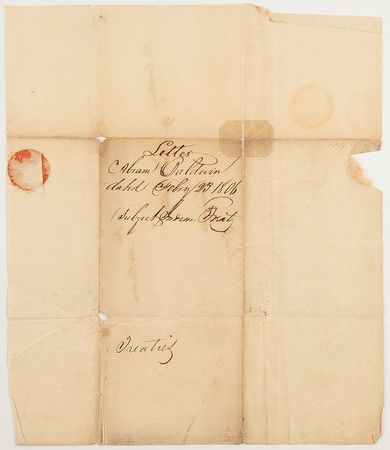 Letter
Abram Baldwin
datd Feby 23 1806
Subject Indian Treaty
Treaties